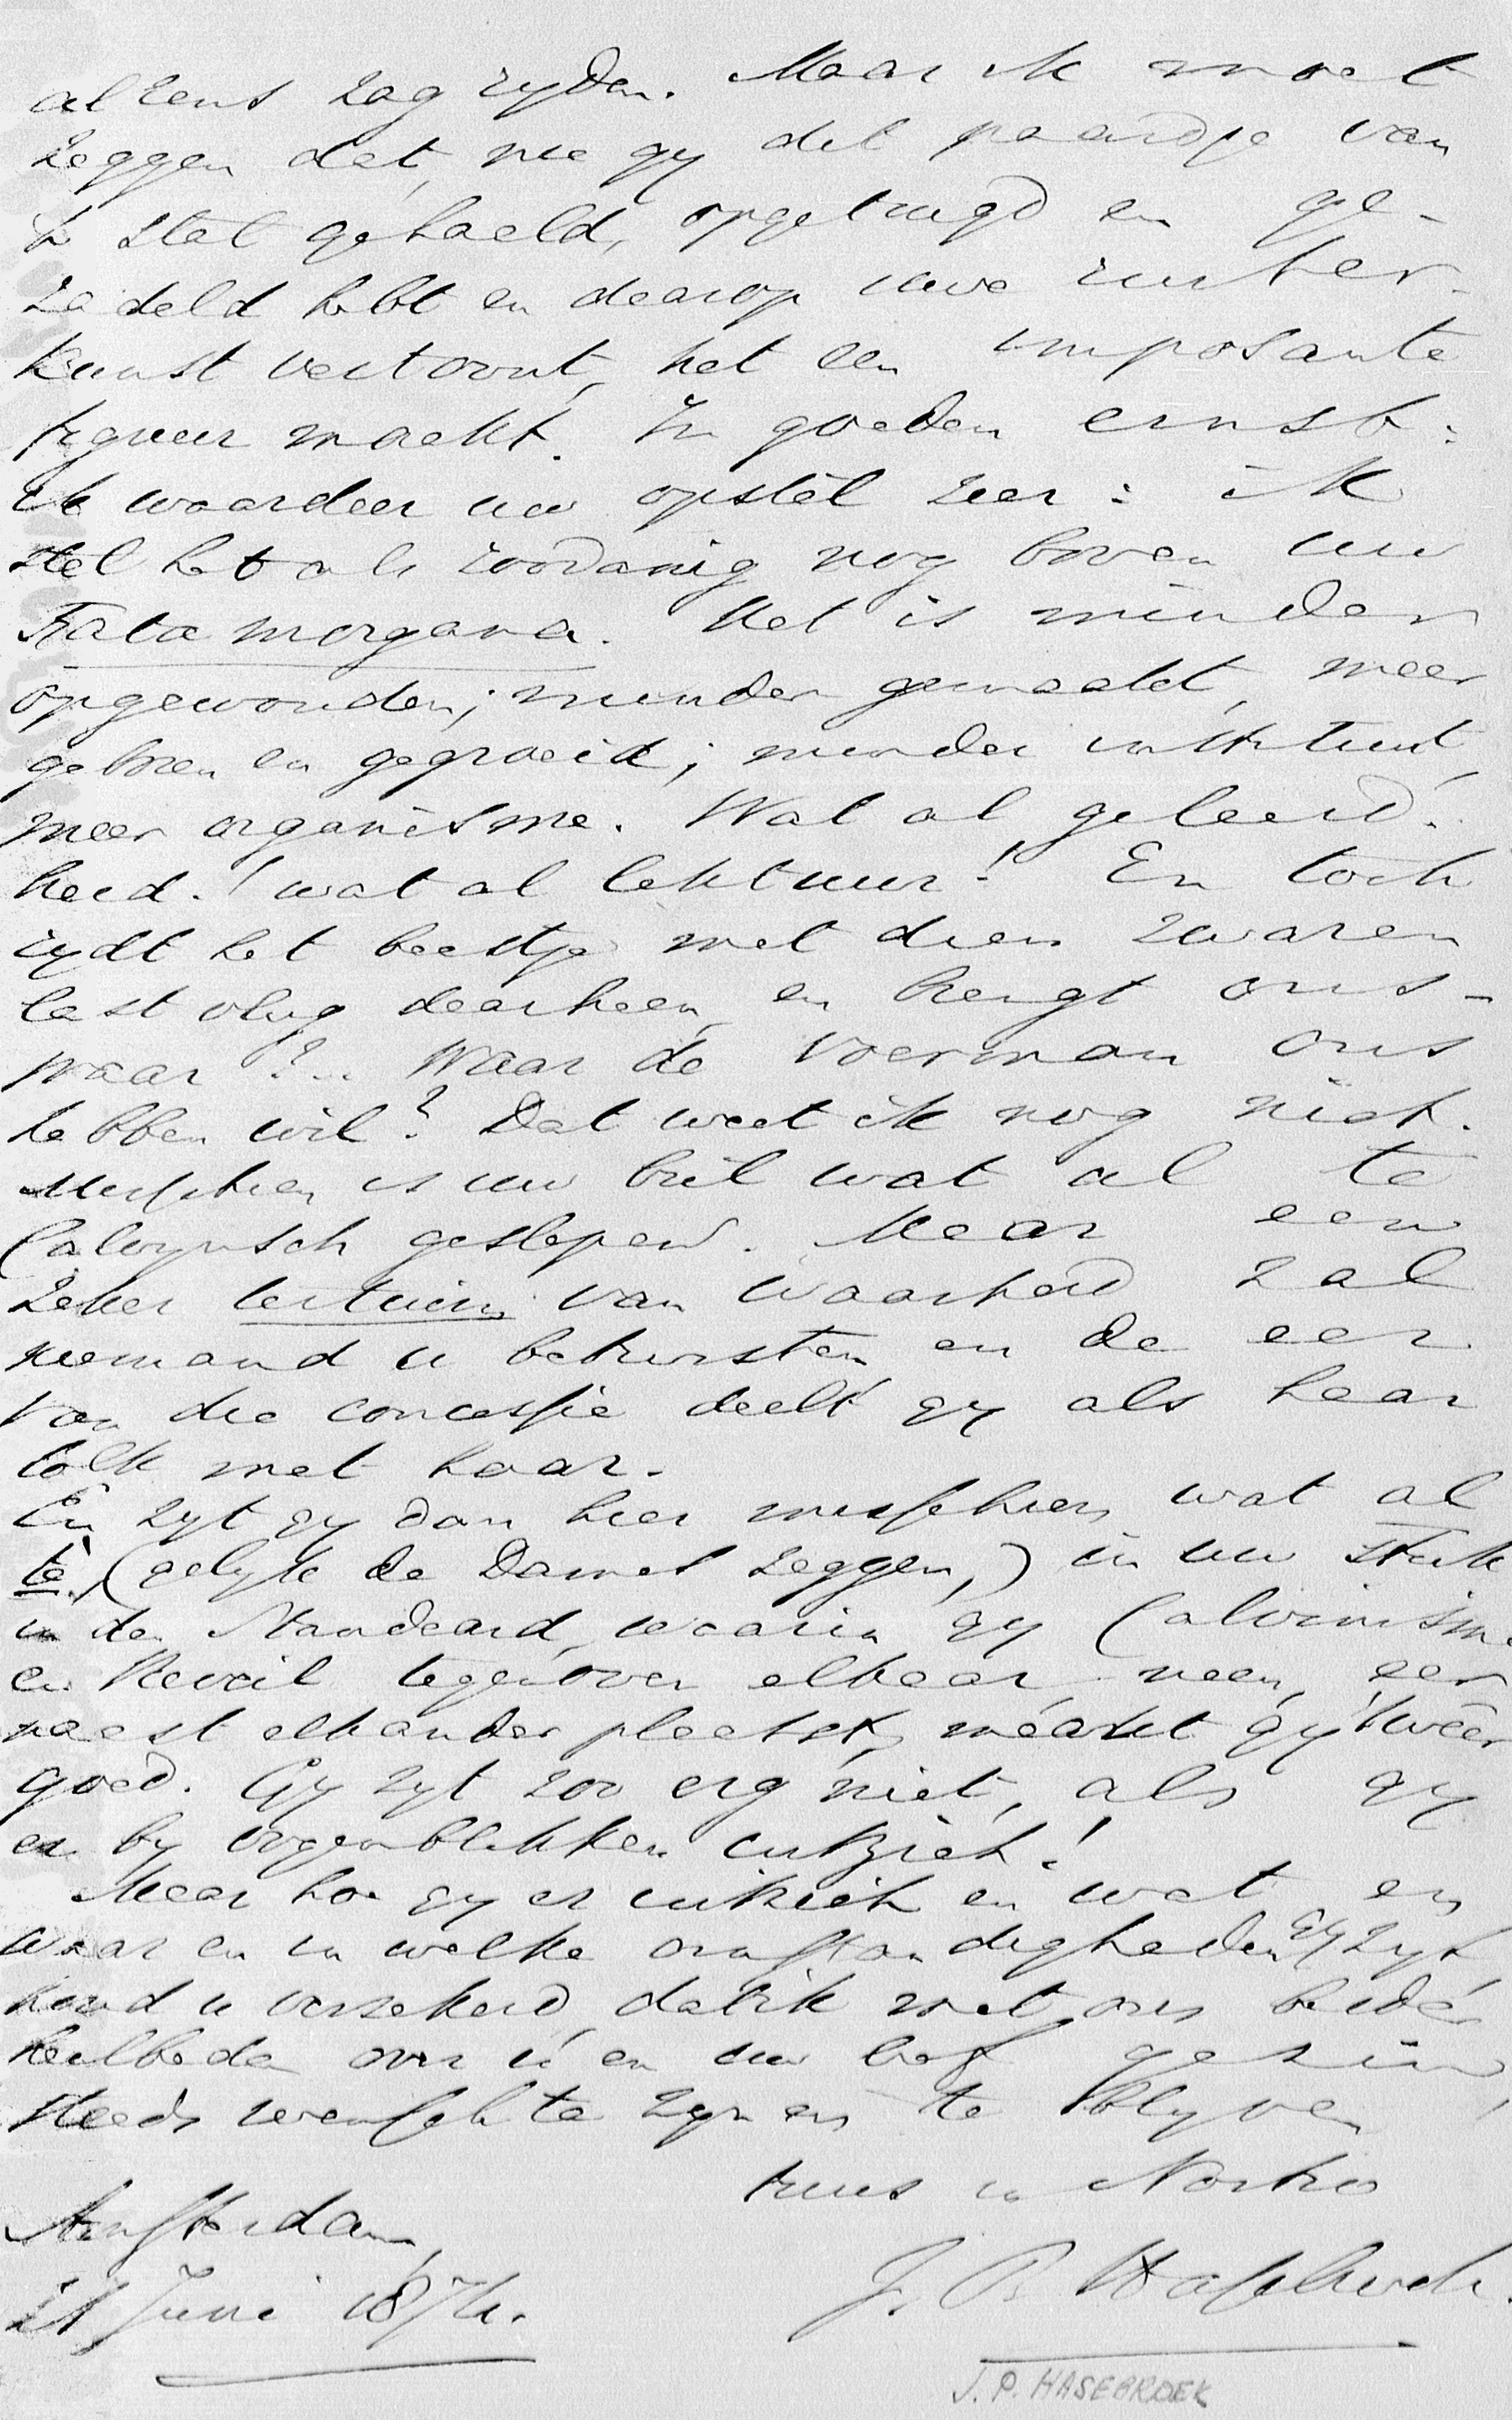 al eens zag ryden. Maar ik moet
zeggen dat, nu gy dit paardje van
stal gehaald, opgetuigd en ge-
zadeld hebt en daarop uwe ruiter-
kunst vertoont, het een imposante
figuur maakt. In goeden ernst:
ik waardeer uw opstel zeer: ik
stel het als zoodanig nog boven uw
Fata morgana. Het is minder
opgewonden; minder gemaakt, meer
geboren en gegroeid; minder instituut,
meer organisme. Wat al geleerd-
heid! wat al lektuur! En toch
rydt het beestje met dien zwaren
last vlug daarheen, en brengt ons-
waar?.. Waar de voerman ons
hebben wil? Dat weet ik nog niet.
Misschien is uw bril wat al te
Calvynsch geslepen. Maar een
zeker tertium van waarheid zal
niemand u betwisten en de eer
van die concessie deelt gy als haar
tolk met haar.
En zyt gy dan hier misschien wat al
te, (gelyk de Dames zeggen,) in uw stuk
in de Standaard, waarin gy Calvinisme
en Reveil tegenover elkaar, neen, eer
naast elkander plaatst, maakt gy 't weêr
goed. Gy zyt zoo erg niet, als gy
er by oogenblikken uitziet!
Maar hoe gy er uitziet en wat en
waar en in welke omstandigheden gy zyt
houd u verzekerd, dat ik met ons beider
heilbede over u en uw lief gezin,
steeds wensch te zyn en te blyven
tuus in Nostro
Amsterdam,
21 Juni 1874.
J. P. Hasebroek.
J. P. HASEBROEK